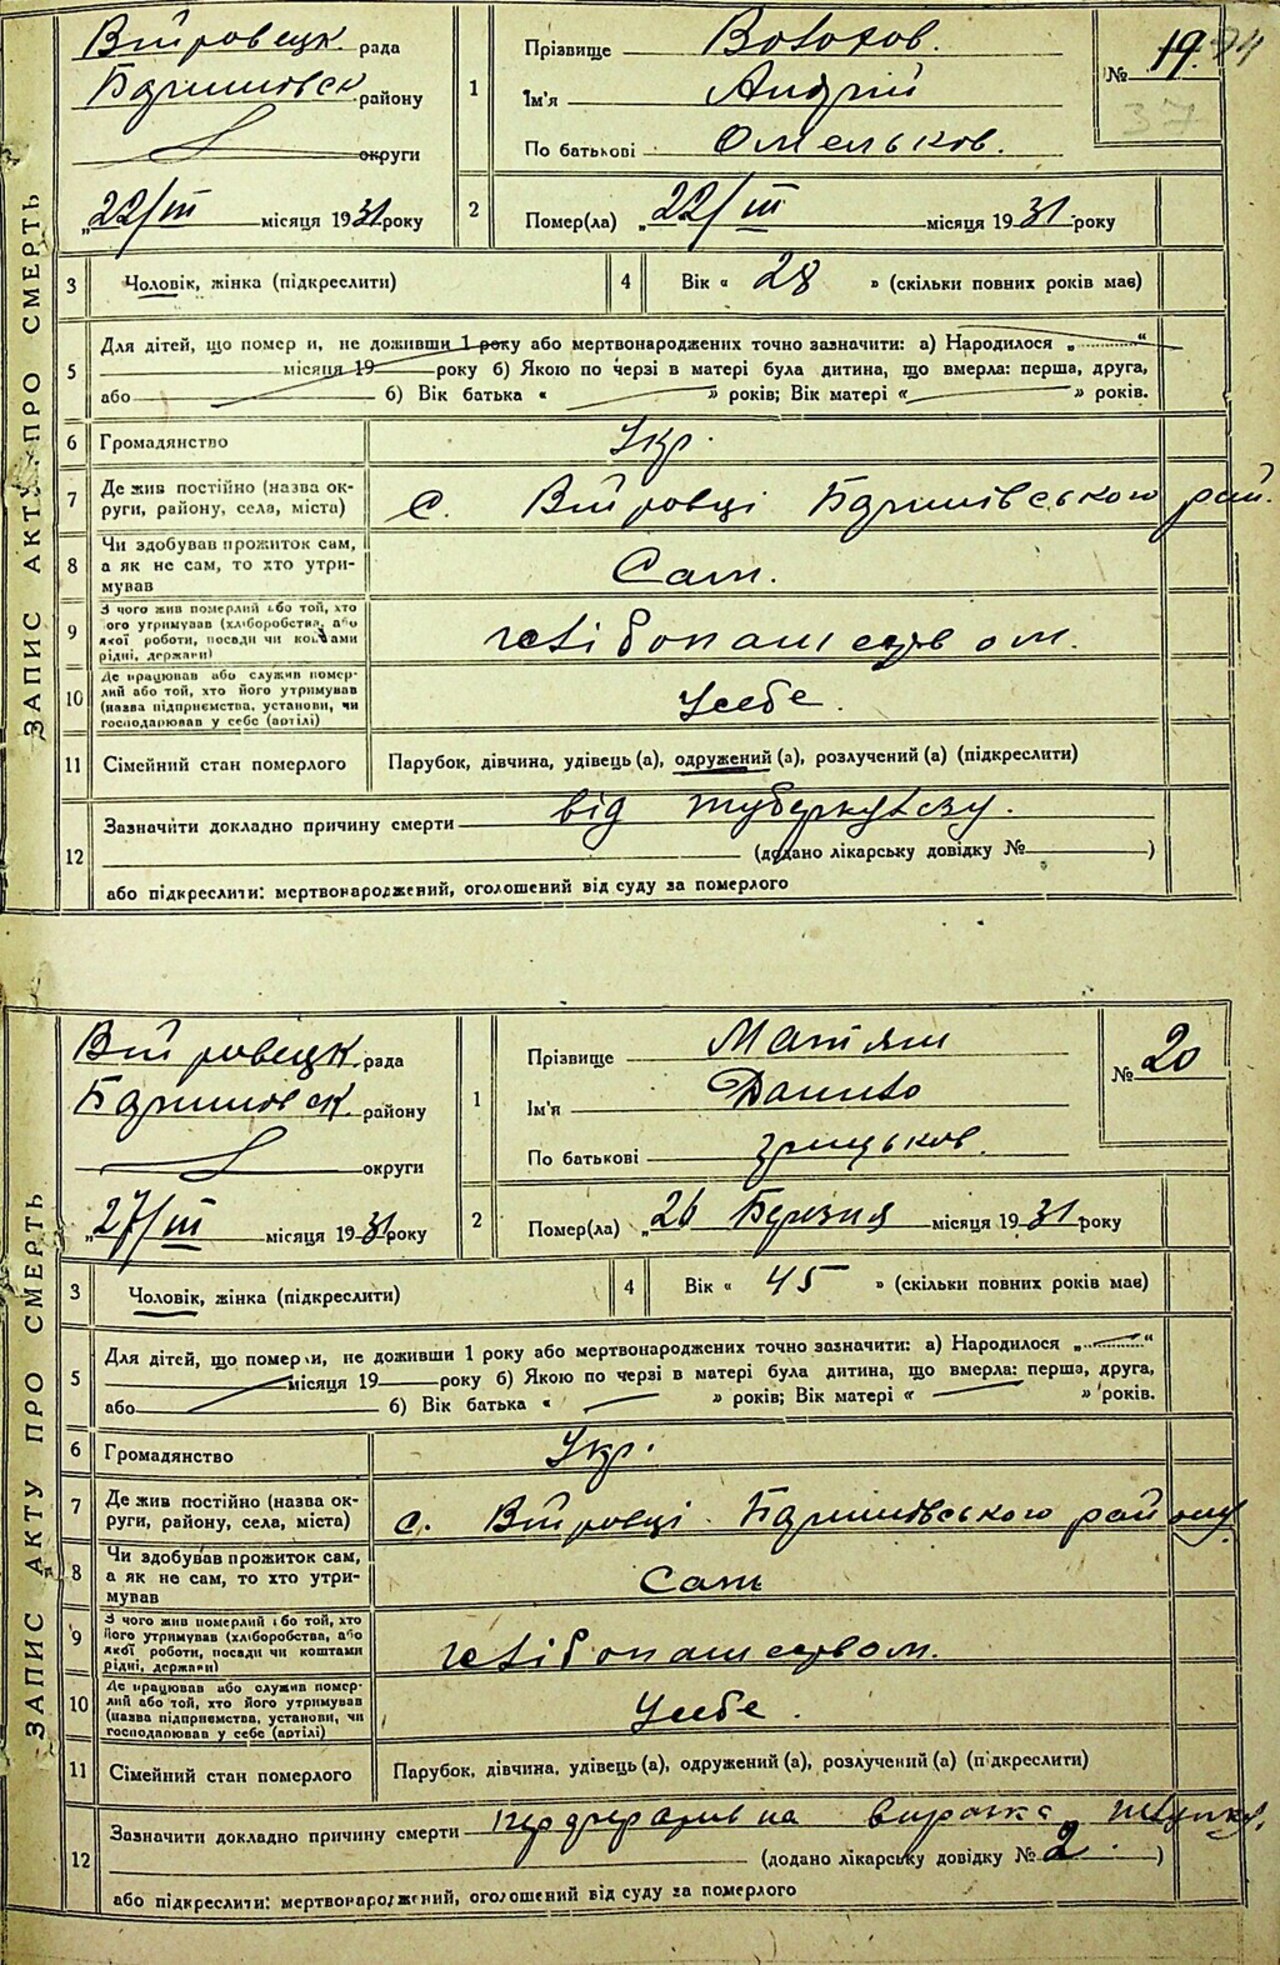 ЗАПИС АКТУ ПРО СМЕРТЬ
Війтовецк. рада
Баришовск району
округи
„22/III місяця 1931 року
1
Прізвище Волохов.
Ім'я Андрій
По батькові Омельков.
№ 19.
37
2
Помер(ла) „22/III місяця 1931 року
3 Чоловік, жінка (підкреслити)
4 Вік « 28 » (скільки повних років має)
5 Для дітей, що померли, не доживши 1 року або мертвонароджених точно зазначити: а) Народилося „ “
місяця 19 року б) Якою по черзі в матері була дитина, що вмерла: перша, друга,
або б) Вік батька « » років; Вік матері « » років.
6 Громадянство Укр.
7 Де жив постійно (назва округи, району, села, міста) с. Війтовці Баришівського рай.
8 Чи здобував прожиток сам, а як не сам, то хто утримував Сам.
9 З чого жив померлий або той, хто його утримував (хліборобства, або якої роботи, посади чи коштами рідні, держави) хлібопашеством.
10 Де працював або служив померлий або той, хто його утримував (назва підприємства, установи, чи господарював у себе (артілі) Усебе.
11 Сімейний стан померлого Парубок, дівчина, удівець (а), одружений (а), розлучений (а) (підкреслити)
12 Зазначити докладно причину смерти від туберкульозу.
(додано лікарську довідку № )
або підкреслити: мертвонароджений, оголошений від суду за померлого
ЗАПИС АКТУ ПРО СМЕРТЬ
Війтовецк. рада
Баришовск. району
округи
„27/III місяця 1931 року
1
Прізвище Матяш
Ім'я Данило
По батькові Грицьков.
№ 20
2
Помер(ла) „26 Березня місяця 1931 року
3 Чоловік, жінка (підкреслити)
4 Вік « 45 » (скільки повних років має)
5 Для дітей, що померли, не доживши 1 року або мертвонароджених точно зазначити: а) Народилося „ “
місяця 19 року б) Якою по черзі в матері була дитина, що вмерла: перша, друга,
або б) Вік батька « » років; Вік матері « » років.
6 Громадянство Укр.
7 Де жив постійно (назва округи, району, села, міста) с. Війтовці Баришівського району
8 Чи здобував прожиток сам, а як не сам, то хто утримував Сам
9 З чого жив померлий або той, хто його утримував (хліборобства, або якої роботи, посади чи коштами рідні, держави) хлібопашеством.
10 Де працював або служив померлий або той, хто його утримував (назва підприємства, установи, чи господарював у себе (артілі) Усебе.
11 Сімейний стан померлого Парубок, дівчина, удівець (а), одружений (а), розлучений (а) (підкреслити)
12 Зазначити докладно причину смерти
(додано лікарську довідку № 2 )
або підкреслити: мертвонароджений, оголошений від суду за померлого